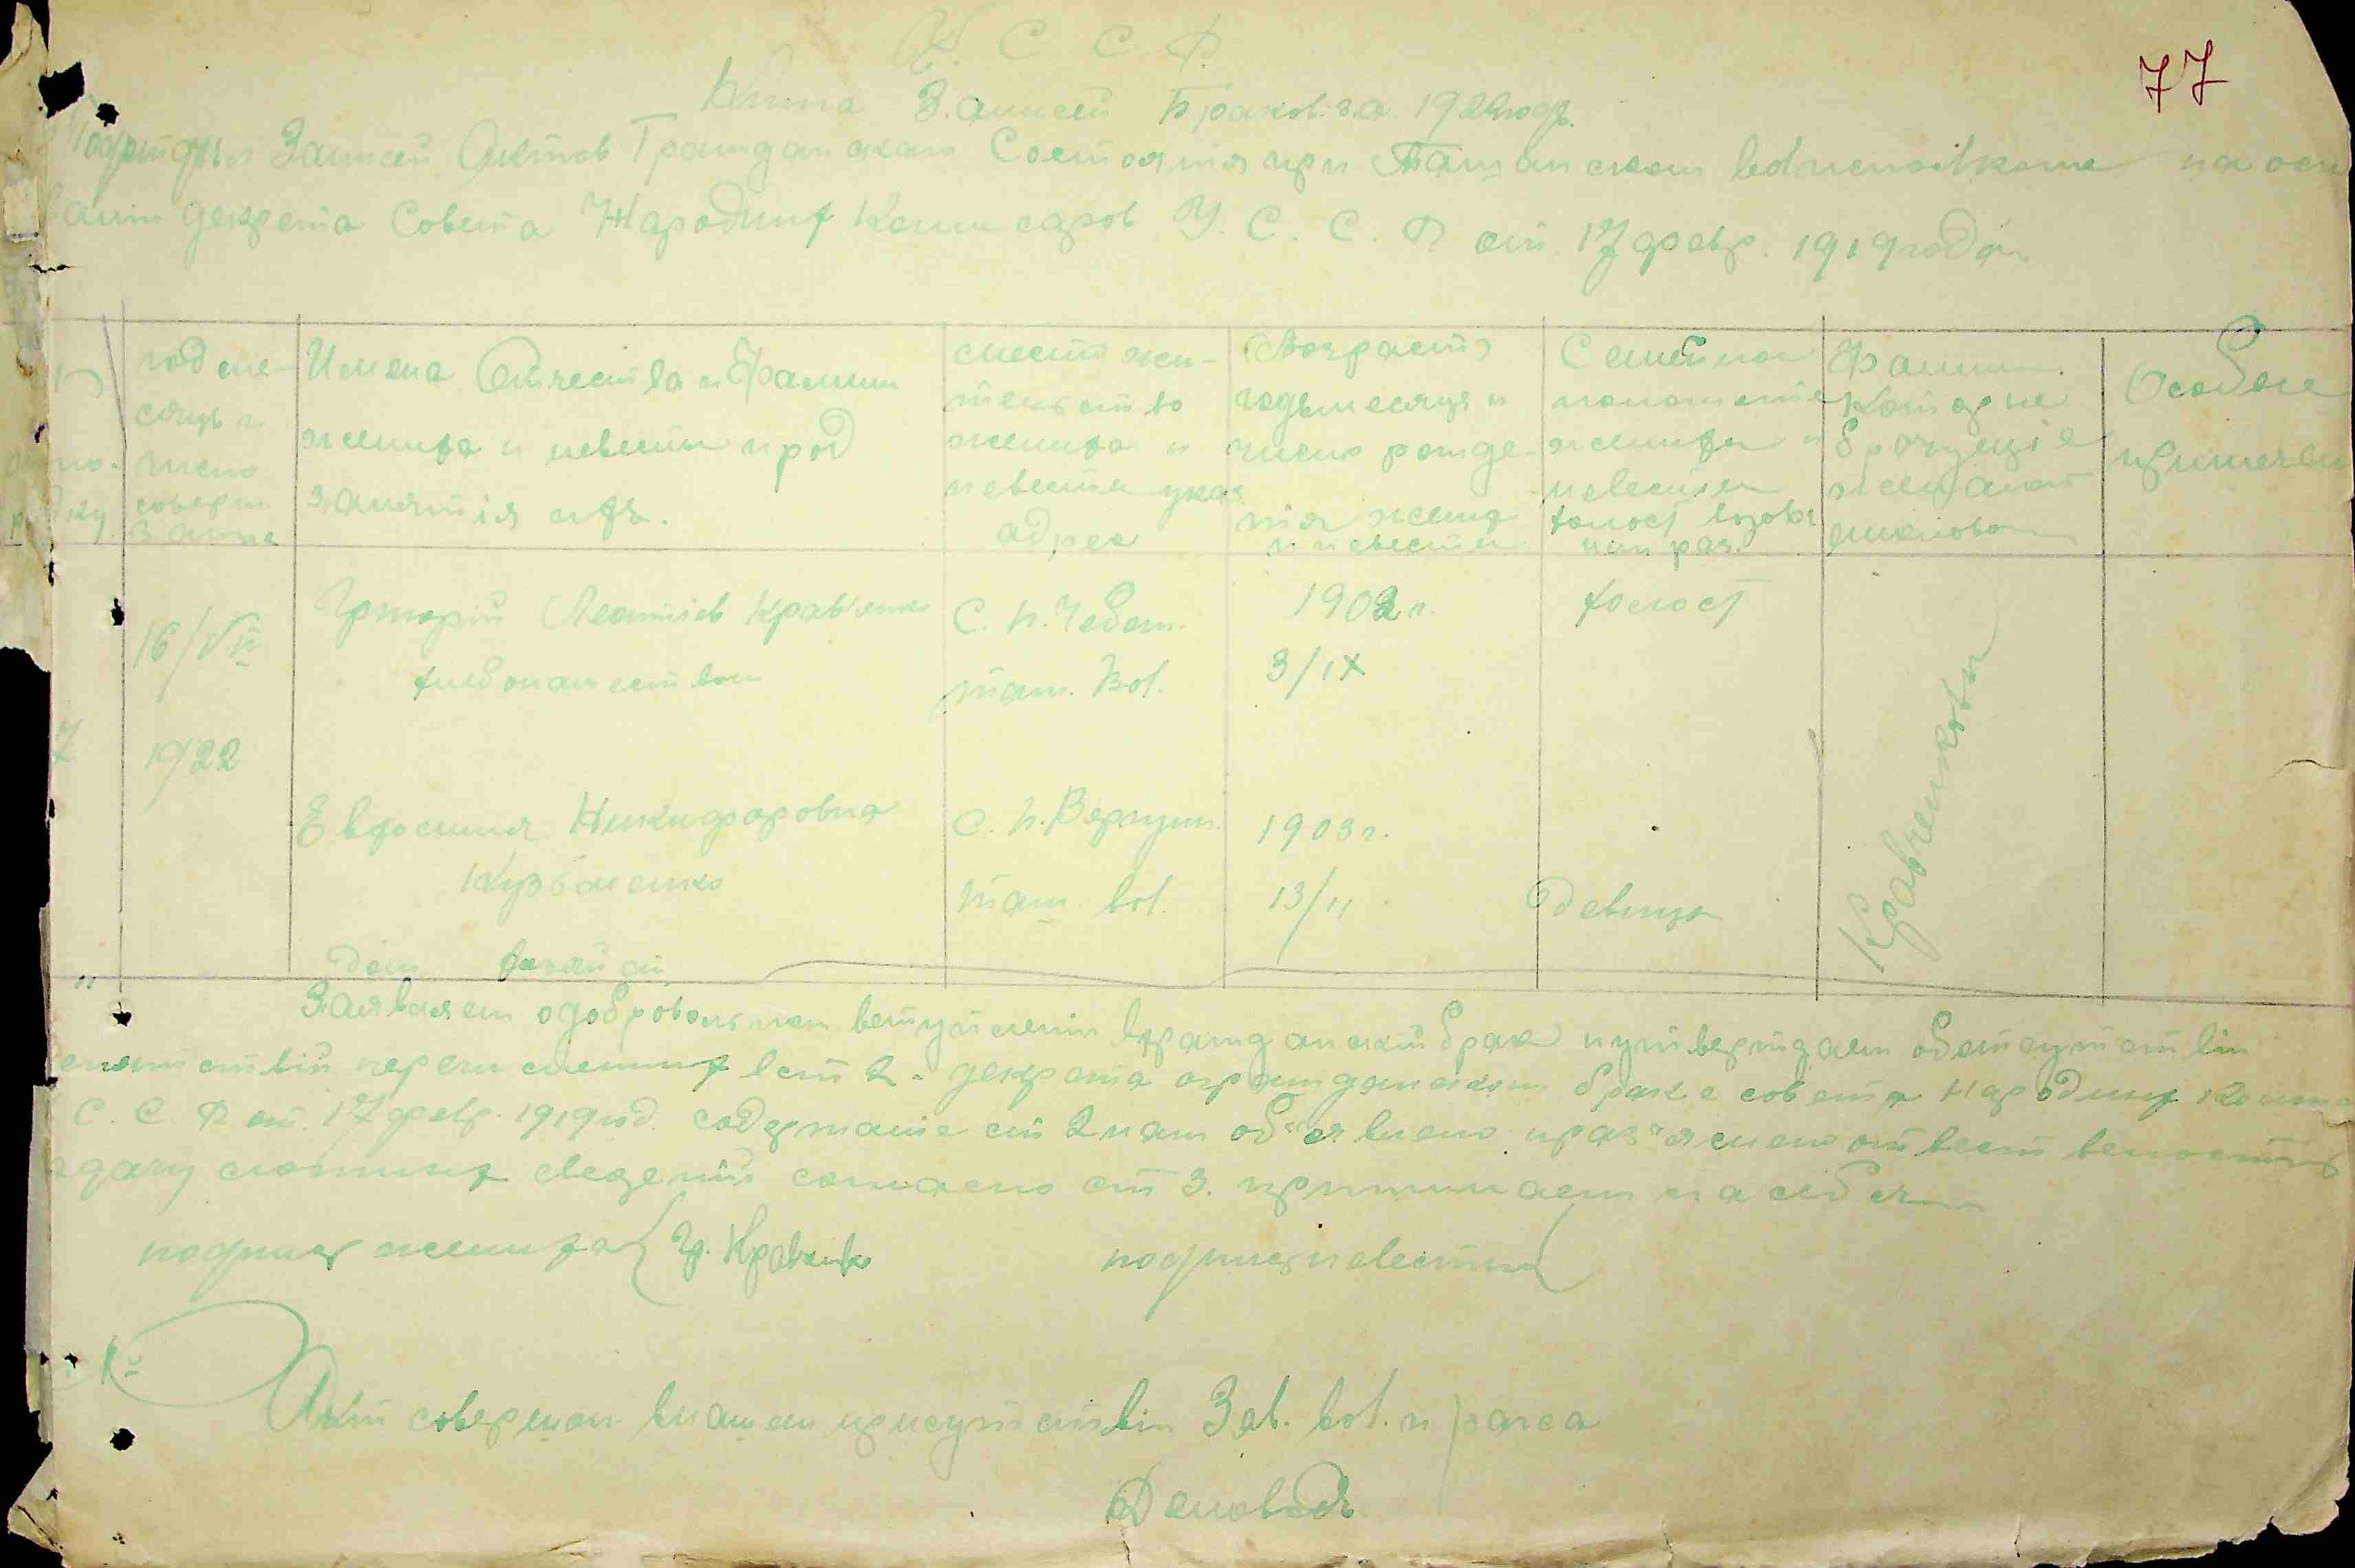 У. С. С. Р.
77
Книга Записей Браков за 1922 годъ.
Подотдел Записей Актов Гражданскаго Состояния при Ташанском Волисполкоме на осн
вании декрета Совета Народных Комиссаров У. С. С. Р от 17 февр. 1919 года
год ме-
сяць и
число
соверш.
записи
Имена Отчества и Фамилии
жениха и невесты и род
занятія ихъ.
место жи-
тельство
жениха и
невести указ
адрес
Возрастъ
годъ месяць и
число рожде-
нія жениха
и невести
Семейное
положеніе
жениха и
невести
холост вдовы
или раз.
Фамилия
которие
брачущіе
желают
именоват
Особое
примечан
16/VII
1922
7
Григорій Леонтіев Кравченко
хлебопашеством
С. П. Чебот.
Таш. Вол.
1902 г.
3/IX
холост
Евфосиния Никифоровна
Кузьменко
дом. хозяйст
С. Н. Вергун.
Таш. вол.
1903 г.
13/11
девица
Кравченковы
Заявляем о добровольном вступлении в гражданский брак и утверждаем об отсутствіи
перечисленных в ст 2 декрета о гражданском браке совета Народних Комисса
С. С. Р от 17 февр. 1919 год. содержаніе ст 2 нам об"явлено и раз"яснено ответственость
дачу ложних сведений согласно ст 3. принимаем на себя
подпись жениха Гр. Кравченко
подпись невести
Акт совершон в нашем присутствіи Зав. вол. п/загса
Деловод